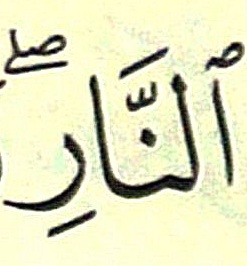 ٱلنَّارِ ۖ